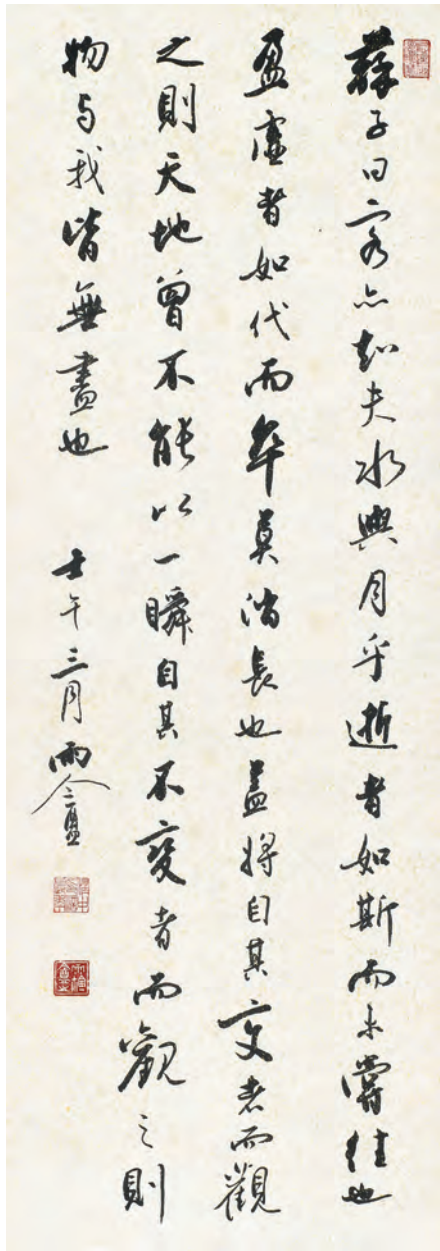 蘇子曰客亦知夫水與月乎逝者如斯而未嘗往也
盈虛者如代而卒莫消長也蓋將自其變者而觀
之則天地曾不能以一瞬自其不變者而觀之則
物与我皆無盡也 壬午三月雨盦